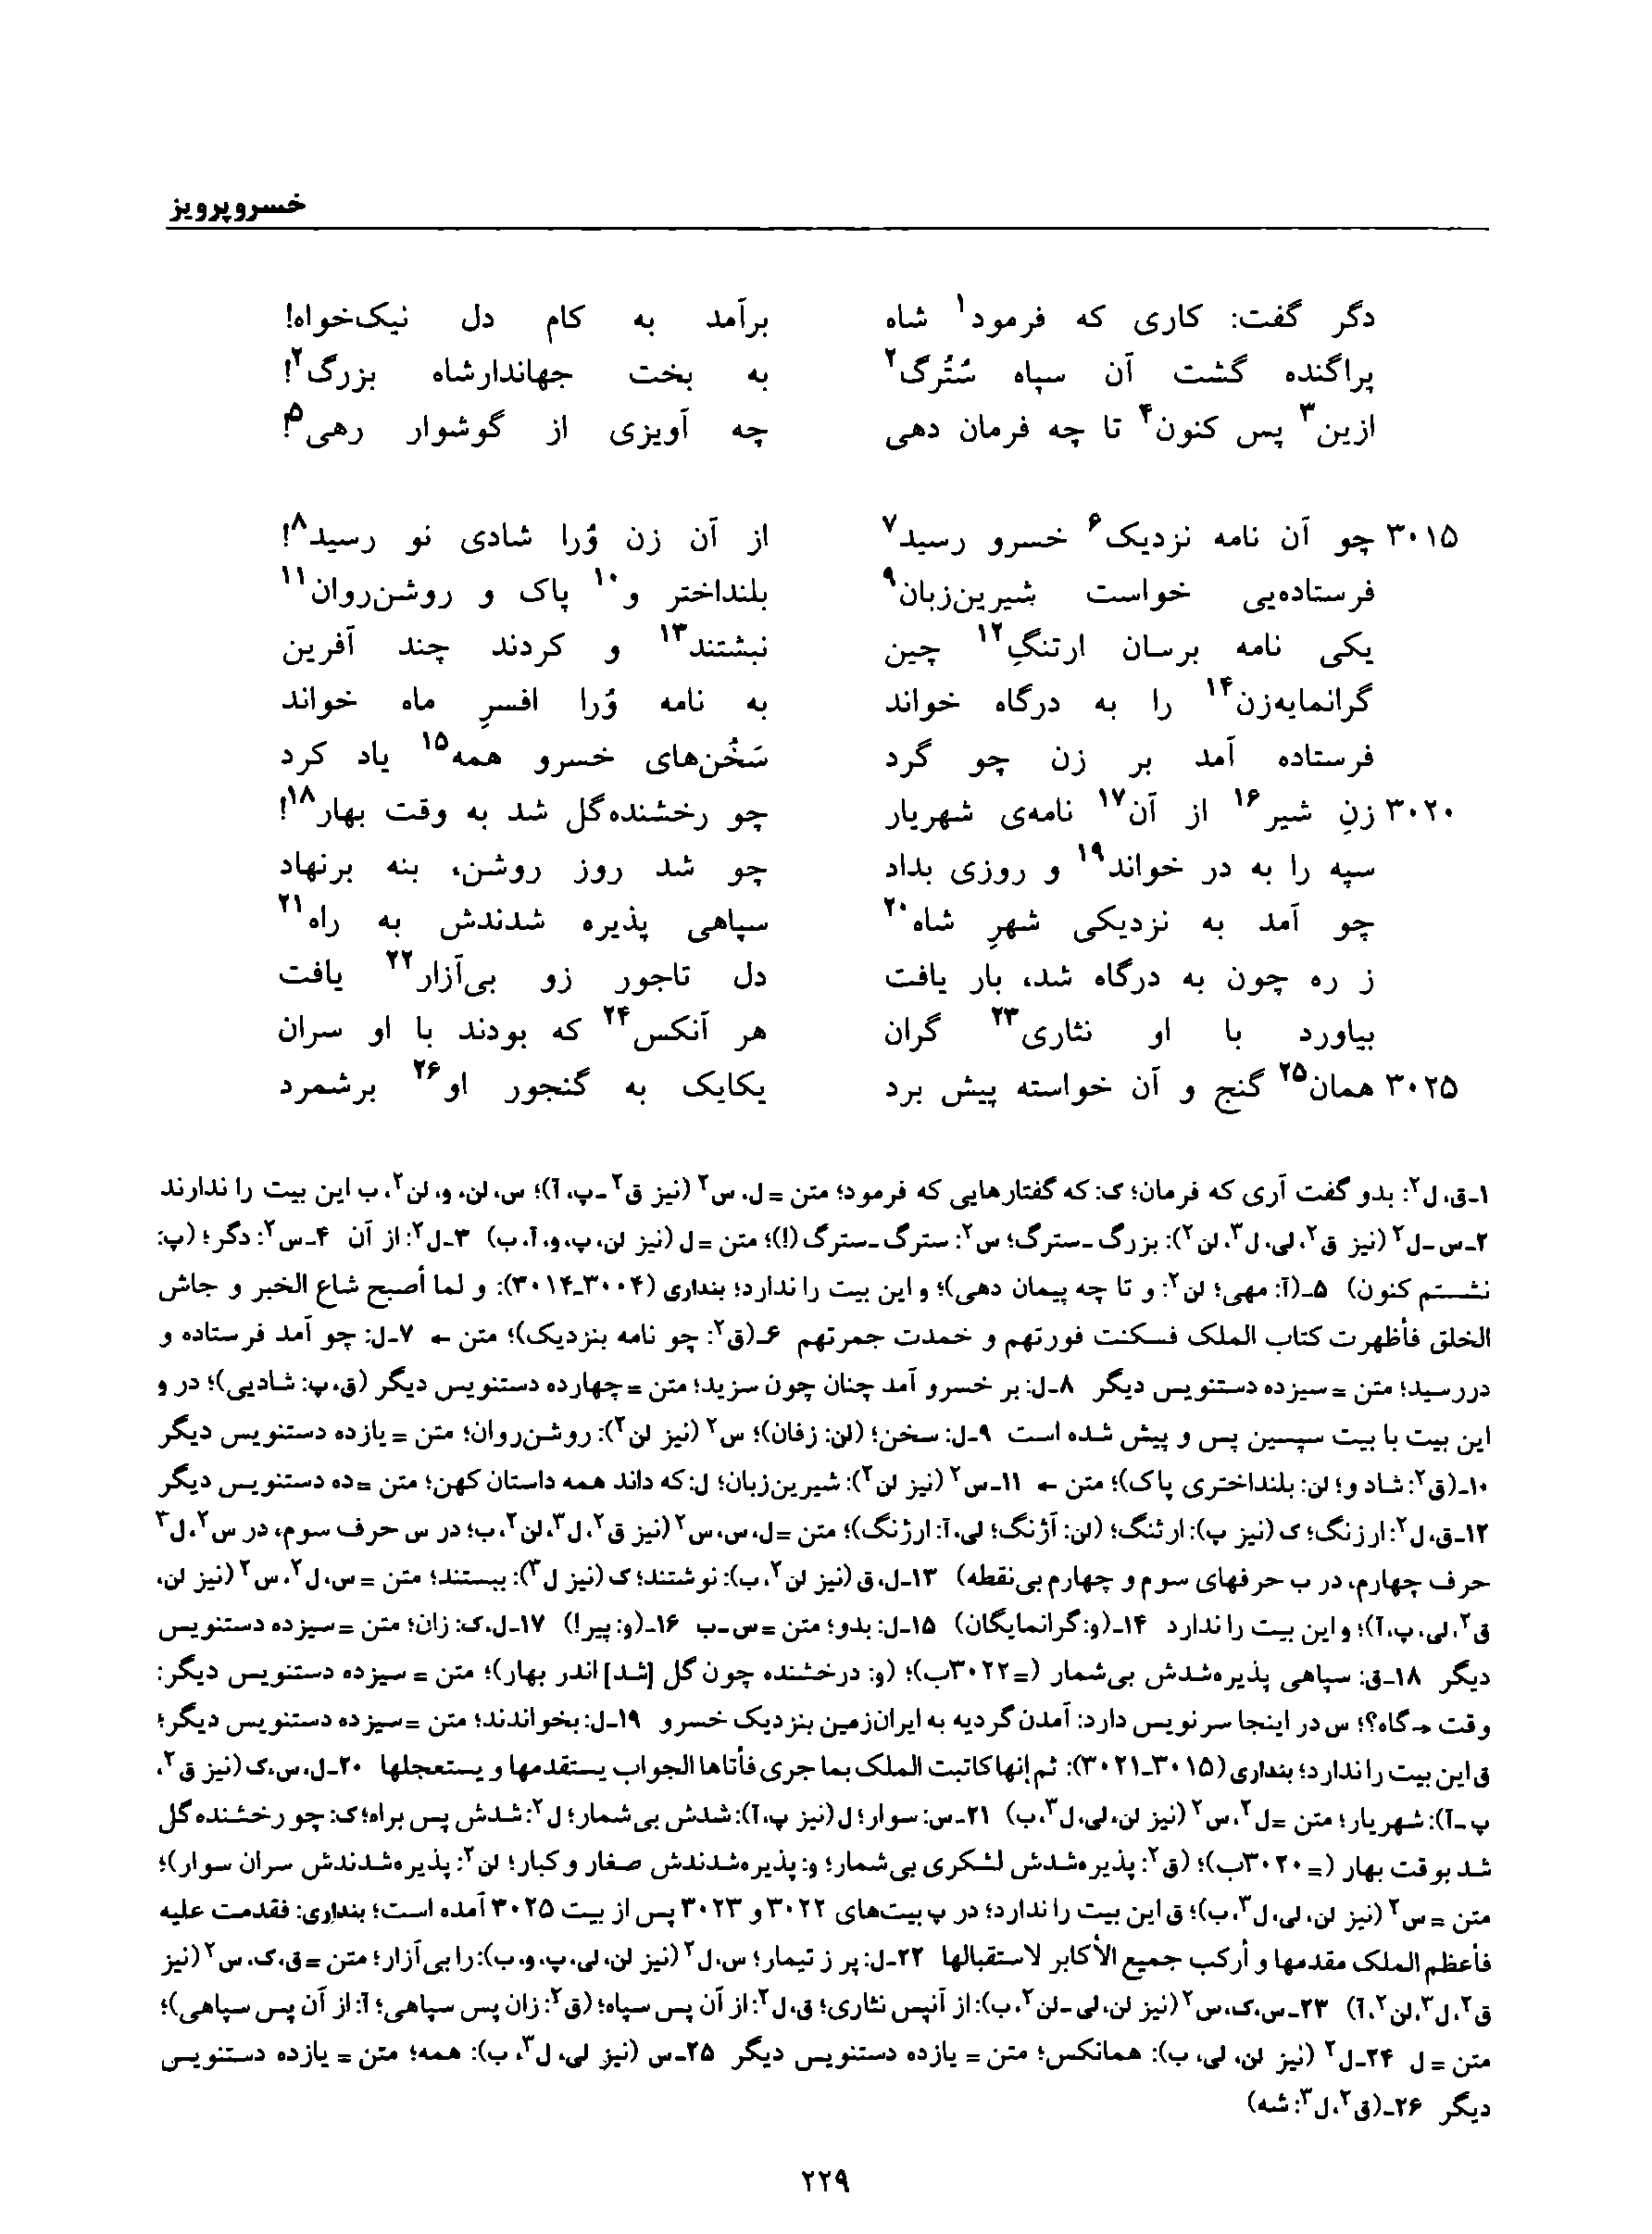 خسروپرویز
دگر گفت: کاری که فرمود۱ شاه برآمد به کام دل نیک‌خواه!
پراگنده گشت آن سپاه سُتُرگ۲ به بخت جهاندارشاه بزرگ۲!
ازین۳ پس کنون۴ تا چه فرمان دهی چه آویزی از گوشوار رهی۵!
۳۰۱۵ چو آن نامه نزدیک۶ خسرو رسید۷ از آن زن وُرا شادی نو رسید۸!
فرستاده‌یی خواست شیرین‌زبان۹ بلنداختر و۱۰ پاک و روشن‌روان۱۱
یکی نامه برسان ارتنگِ۱۲ چین نبشتند۱۳ و کردند چند آفرین
گرانمایه‌زن۱۴ را به درگاه خواند به نامه وُرا افسرِ ماه خواند
فرستاده آمد بر زن چو گرد سَخُن‌های خسرو همه۱۵ یاد کرد
۳۰۲۰ زنِ شیر۱۶ از آن۱۷ نامه‌ی شهریار چو رخشنده‌گل شد به وقت بهار۱۸!
سپه را به در خواند۱۹ و روزی بداد چو شد روز روشن، بنه برنهاد
چو آمد به نزدیکی شهرِ شاه۲۰ سپاهی پذیره شدندش به راه۲۱
ز ره چون به درگاه شد، بار یافت دل تاجور زو بی‌آزار۲۲ یافت
بیاورد با او نثاری۲۳ گران هر آنکس۲۴ که بودند با او سران
۳۰۲۵ همان۲۵ گنج و آن خواسته پیش برد یکایک به گنجور او۲۶ برشمرد
۱ـ‌ق، ل۲: بدو گفت آری که فرمان؛ ک: که گفتارهایی که فرمود؛ متن = ل، س۲ (نیز ق۲ـ‌پ، آ)؛ س، لن، و، لن۲، ب این بیت را ندارند
۲ـ‌س ـ‌ل۲ (نیز ق۲، لی، ل۳، لن۲): بزرگ ـ‌سترگ؛ س۲: سترگ ـ‌سترگ (!)؛ متن = ل (نیز لن، پ، و، آ، ب) ۳ـ‌ل۲: از آن ۴ـ‌س۲: دگر؛ (پ:
نشستم کنون) ۵ـ‌(آ: مهی؛ لن۲: و تا چه پیمان دهی)؛ و این بیت را ندارد؛ بنداری (۳۰۰۴ـ‌۳۰۱۴): و لما أصبح شاع الخبر و جاش
الخلق فأظهرت کتاب الملک فسکنت فورتهم و خمدت جمرتهم ۶ـ‌(ق۲: چو نامه بنزدیک)؛ متن ← ۷ـ‌ل: چو آمد فرستاده و
دررسید؛ متن = سیزده دستنویس دیگر ۸ـ‌ل: بر خسرو آمد چنان چون سزید؛ متن = چهارده دستنویس دیگر (ق، پ: شادیی)؛ در و
این بیت با بیت سپسین پس و پیش شده است ۹ـ‌ل: سخن؛ (لن: زفان)؛ س۲ (نیز لن۲): روشن‌روان؛ متن = یازده دستنویس دیگر
۱۰ـ‌(ق۲: شاد و؛ لن: بلنداختری پاک)؛ متن ← ۱۱ـ‌س۲ (نیز لن۲): شیرین‌زبان؛ ل: که داند همه داستان کهن؛ متن = ده دستنویس دیگر
۱۲ـ‌ق، ل۲: ارزنگ؛ ک (نیز پ): ارثنگ؛ (لن: آژنگ؛ لی، آ: ارژنگ)؛ متن = ل، س، س۲ (نیز ق۲، ل۳، لن۲، ب؛ در س حرف سوم، در س۲، ل۳
حرف چهارم، در ب حرفهای سوم و چهارم بی‌نقطه) ۱۳ـ‌ل، ق (نیز لن۲، ب): نوشتند؛ ک (نیز ل۳): ببستند؛ متن = س، ل۲، س۲ (نیز لن،
ق۲، لی، پ، آ)؛ و این بیت را ندارد ۱۴ـ‌(و: گرانمایگان) ۱۵ـ‌ل: بدو؛ متن = س ـ‌ب ۱۶ـ‌(و: پیر!) ۱۷ـ‌ل، ک: زان؛ متن = سیزده دستنویس
دیگر ۱۸ـ‌ق: سپاهی پذیره‌شدش بی‌شمار (=۳۰۲۲ب)؛ (و: درخشنده چون گل [شد] اندر بهار)؛ متن = سیزده دستنویس دیگر:
وقت ← گاه؟؛ س در اینجا سرنویس دارد: آمدن گردیه به ایران‌زمین بنزدیک خسرو ۱۹ـ‌ل: بخواندند؛ متن = سیزده دستنویس دیگر؛
ق این بیت را ندارد؛ بنداری (۳۰۱۵ـ‌۳۰۲۱): ثم إنها کاتبت الملک بما جری فأتاها الجواب یستقدمها و یستعجلها ۲۰ـ‌ل، س، ک (نیز ق۲،
پ ـ‌آ): شهریار؛ متن = ل۲، س۲ (نیز لن، لی، ل۳، ب) ۲۱ـ‌س: سوار؛ ل (نیز پ، آ): شدش بی‌شمار؛ ل۲: شدش پس براه؛ ک: چو رخشنده‌گل
شد بوقت بهار (= ۳۰۲۰ب)؛ (ق۲: پذیره‌شدش لشکری بی‌شمار؛ و: پذیره‌شدندش صغار و کبار؛ لن۲: پذیره‌شدندش سران سوار)؛
متن = س۲ (نیز لن، لی، ل۳، ب)؛ ق این بیت را ندارد؛ در پ بیت‌های ۳۰۲۲ و ۳۰۲۳ پس از بیت ۳۰۲۵ آمده است؛ بنداری: فقدمت علیه
فأعظم الملک مقدمها و أرکب جمیع الأکابر لاستقبالها ۲۲ـ‌ل: پر ز تیمار؛ س، ل۲ (نیز لن، لی، پ، و، ب): را بی‌آزار؛ متن = ق، ک، س۲ (نیز
ق۲، ل۳، لن۲، آ) ۲۳ـ‌س، ک، س۲ (نیز لن، لی ـ‌لن۲، ب): از آنپس نثاری؛ ق، ل۲: از آن پس سپاه؛ (ق۲: زان پس سپاهی؛ آ: از آن پس سپاهی)؛
متن = ل ۲۴ـ‌ل۲ (نیز لن، لی، ب): همانکس؛ متن = یازده دستنویس دیگر ۲۵ـ‌س (نیز لی، ل۳، ب): همه؛ متن = یازده دستنویس
دیگر ۲۶ـ‌(ق۲، ل۳: شه)
۲۲۹